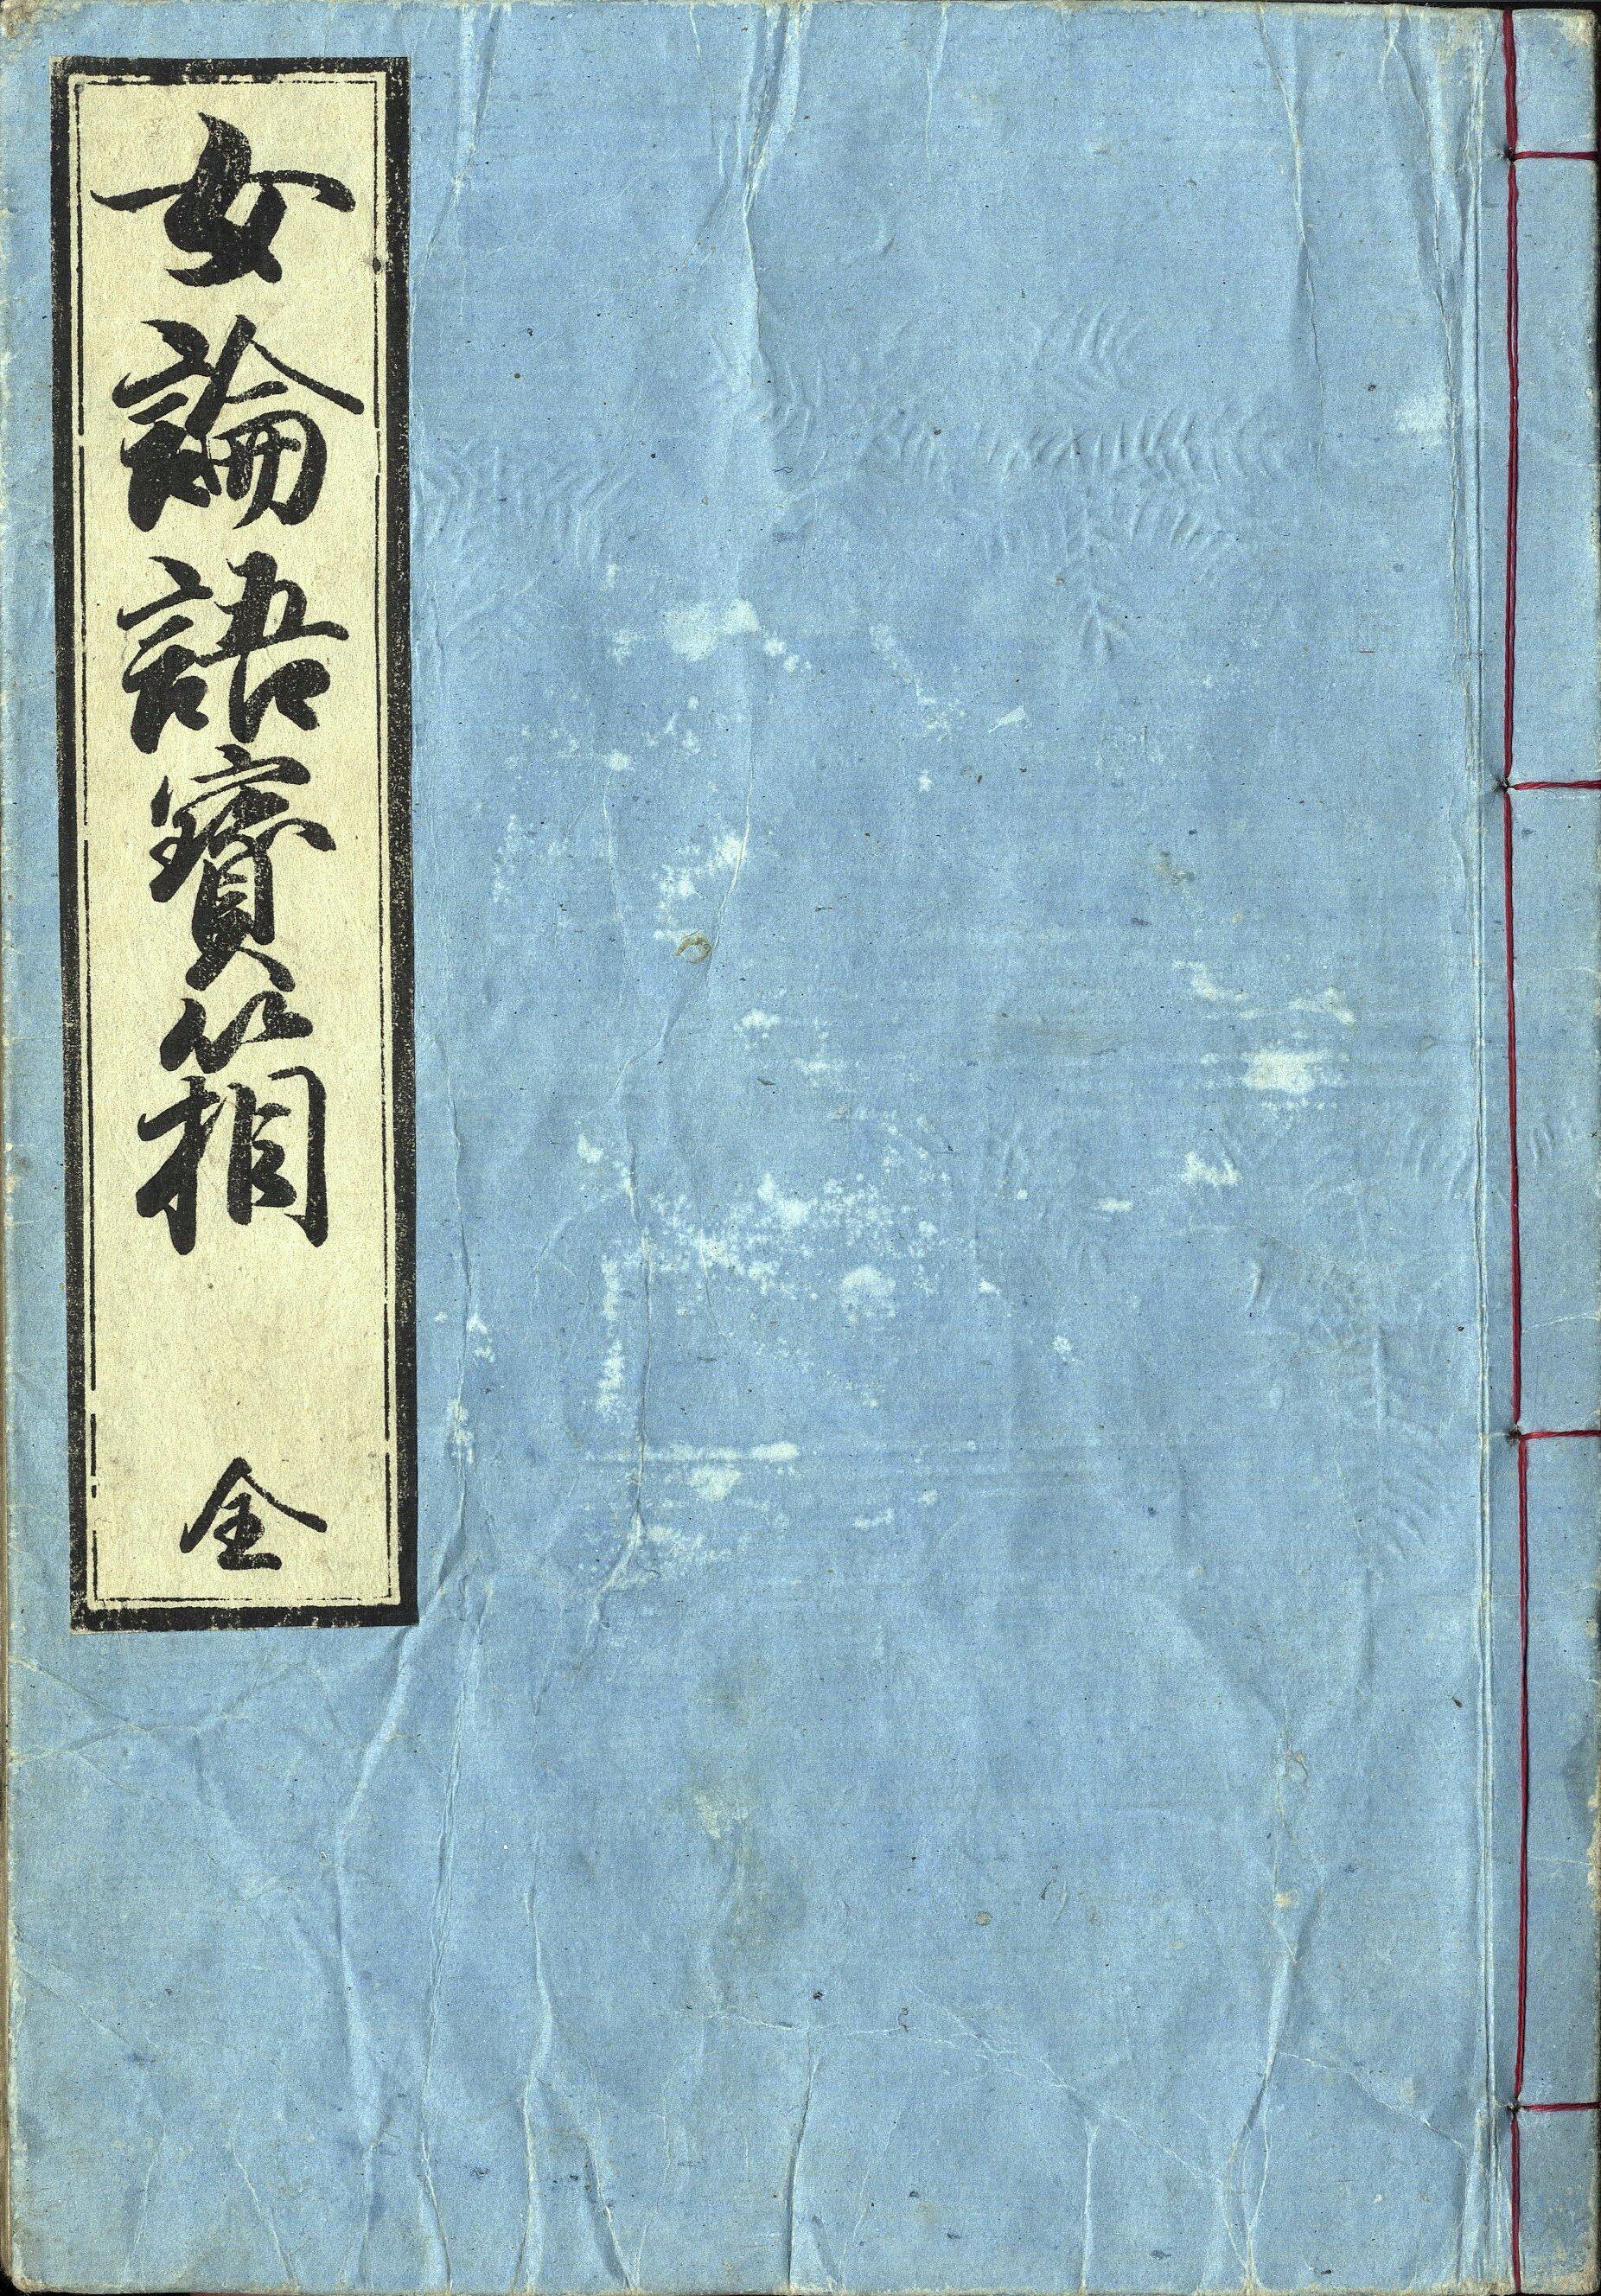 女論語寶箱 全